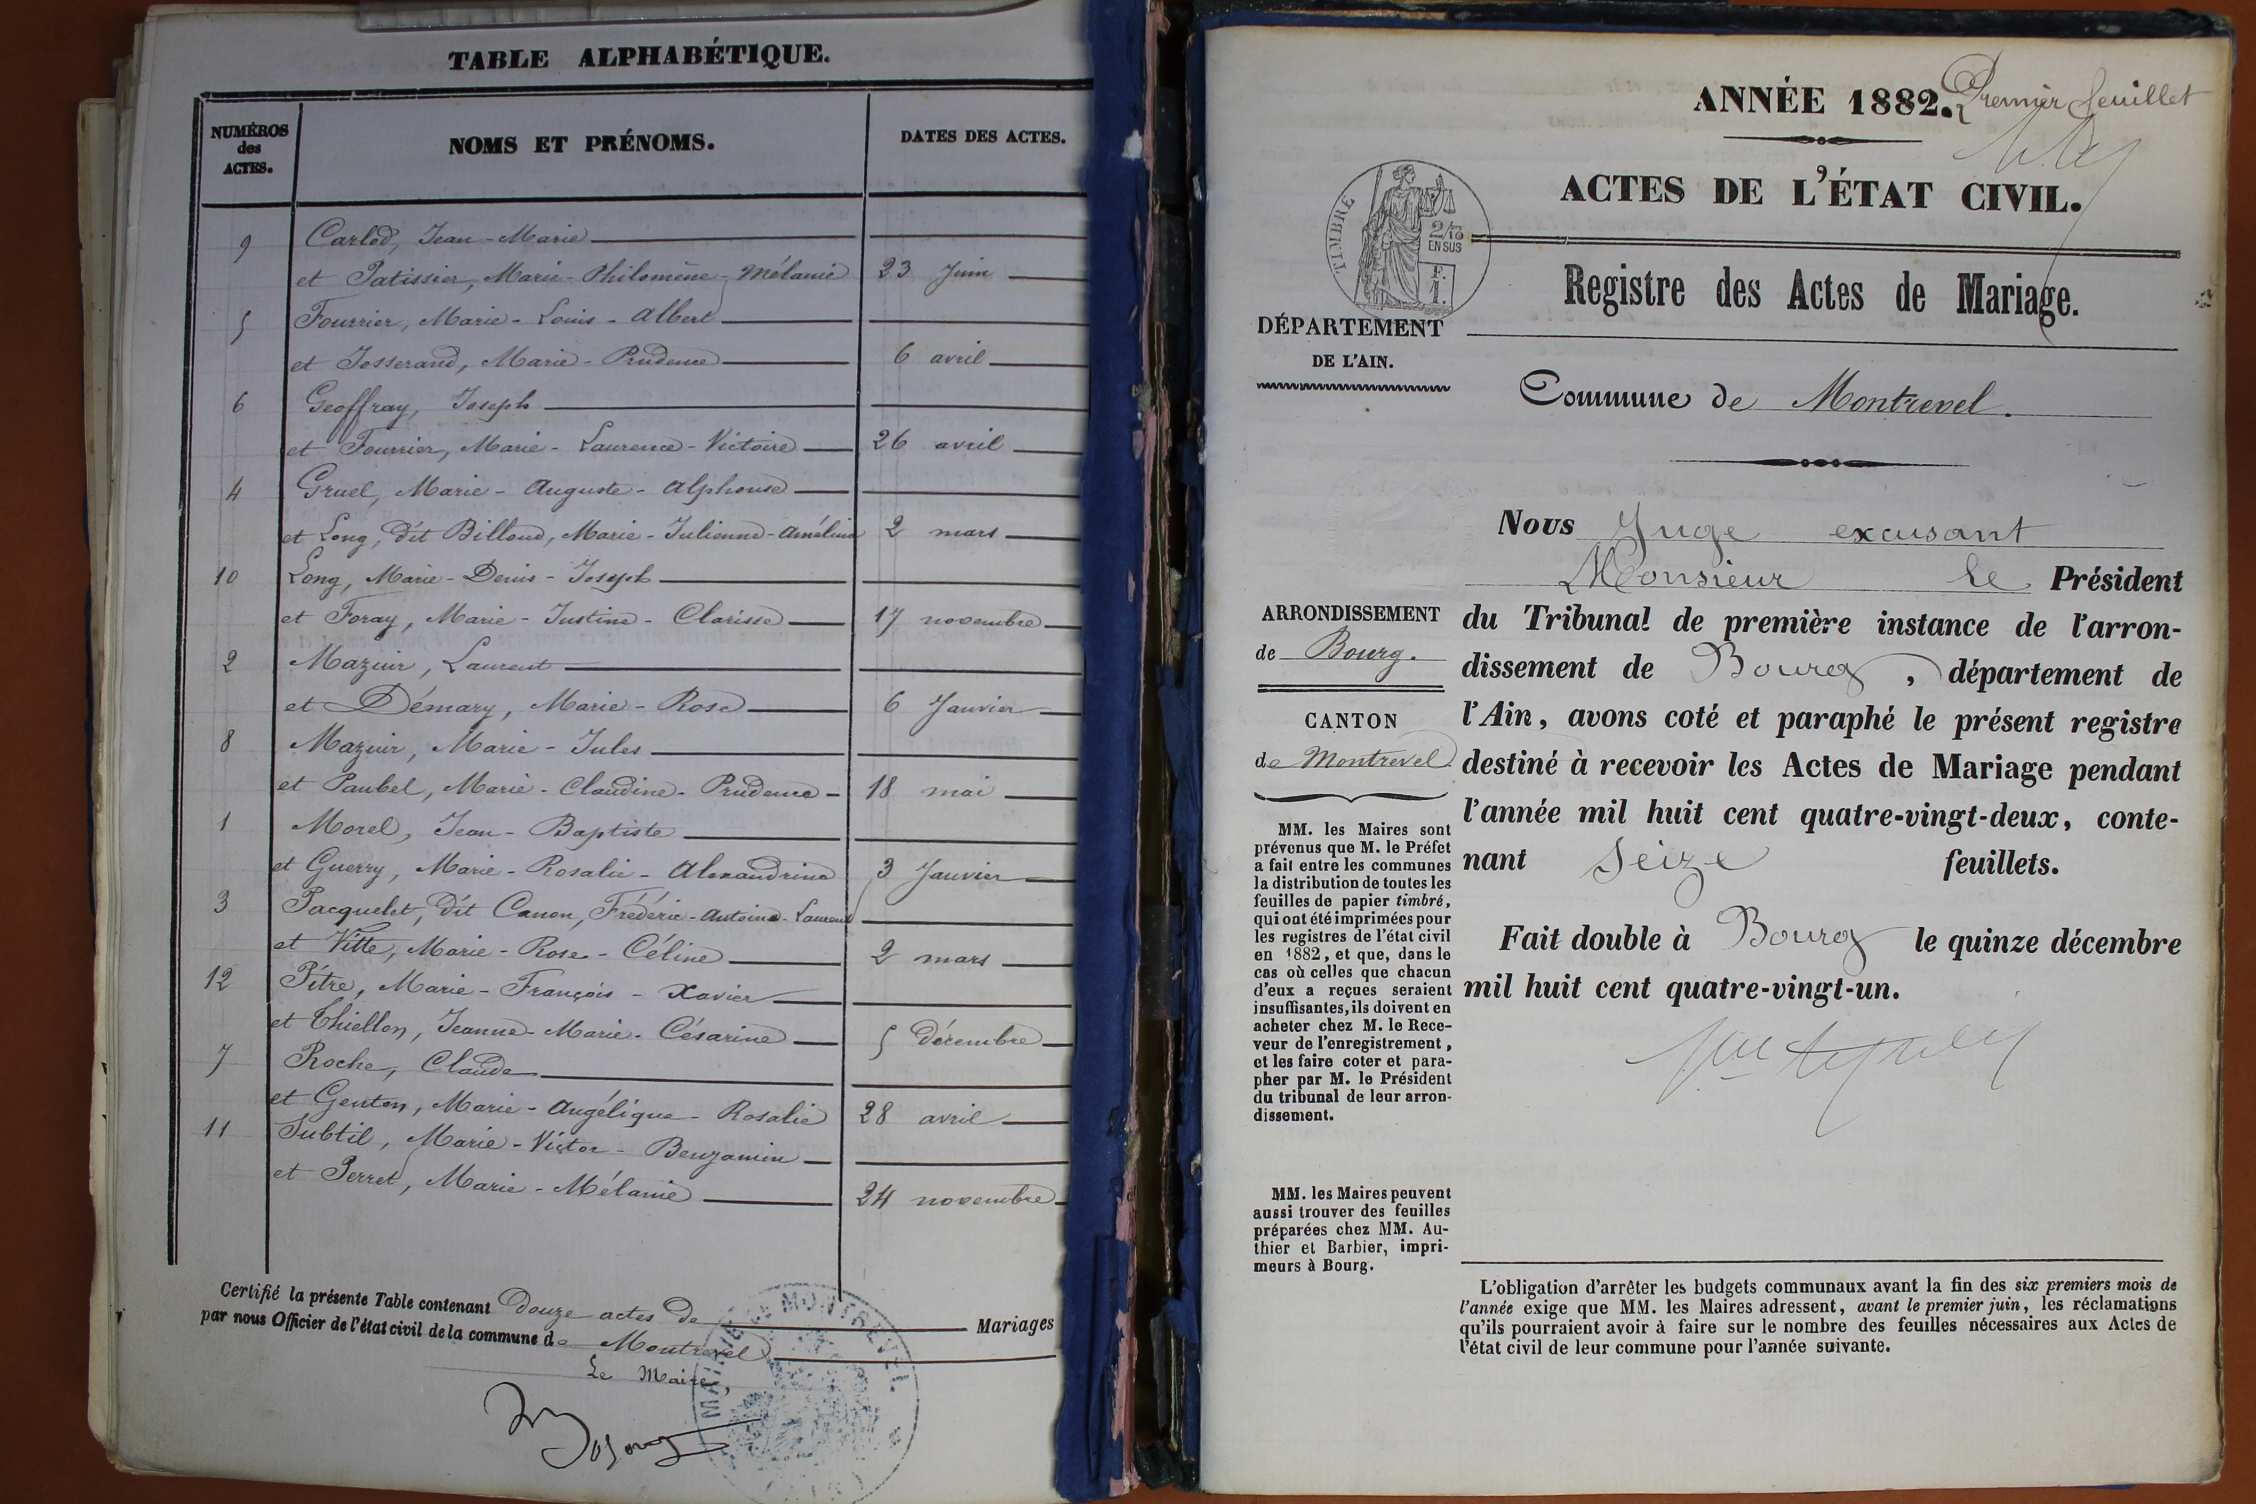 TABLE ALPHABÉTIQUE.
NUMÉROS
des
ACTES.
NOMS ET PRÉNOMS.
DATES DES ACTES.
9 Carlod, Jean-Marie
et Patissier, Marie-Philomène-Mélanie 23 Juin
5 Fourrier, Marie-Louis-Albert
et Josserand, Marie-Prudence 6 avril
6 Geoffray, Joseph
et Fourrier, Marie-Laurence-Victoire 26 avril
4 Gruel, Marie-Auguste-Alphonse
et Long, dit Billoud, Marie-Julienne-Amélina 2 mars
10 Long, Marie-Denis-Joseph
et Foray, Marie-Justine-Clarisse 17 novembre
2 Mazuir, Laurent
et Démary, Marie-Rose 6 Janvier
8 Mazuir, Marie-Jules
et Paubel, Marie-Claudine-Prudence 18 mai
1 Morel, Jean-Baptiste
et Guerry, Marie-Rosalie-Alexandrine 3 Janvier
3 Pacquelet, dit Canon, Frédéric-Antoine-Laurent
et Vitte, Marie-Rose-Céline 2 mars
12 Pitre, Marie-François-Xavier
et Thiellon, Jeanne-Marie-Césarine 5 Décembre
7 Roche, Claude
et Genton, Marie-Angélique-Rosalie 28 avril
11 Subtil, Marie-Victor-Benjamin
et Perret, Marie-Mélanie 24 novembre
Certifié la présente Table contenant Douze actes de Mariages
par nous Officier de l'état civil de la commune de Montrevel
Le Maire,
MAIRIE DE MONTREVEL
ANNÉE 1882.
Premier feuillet
ACTES DE L'ÉTAT CIVIL.
TIMBRE
2/10
EN SUS
F.
1.
Registre des Actes de Mariage.
DÉPARTEMENT
DE L'AIN.
Commune de Montrevel.
Nous Juge excusant
Monsieur le Président
ARRONDISSEMENT
de Bourg.
CANTON
de Montrevel.
du Tribunal de première instance de l'arron-
dissement de Bourg, département de
l'Ain, avons coté et paraphé le présent registre
destiné à recevoir les Actes de Mariage pendant
l'année mil huit cent quatre-vingt-deux, conte-
nant Seize feuillets.
Fait double à Bourg le quinze décembre
mil huit cent quatre-vingt-un.
MM. les Maires sont
prévenus que M. le Préfet
a fait entre les communes
la distribution de toutes les
feuilles de papier timbré,
qui ont été imprimées pour
les registres de l'état civil
en 1882, et que, dans le
cas où celles que chacun
d'eux a reçues seraient
insuffisantes, ils doivent en
acheter chez M. le Rece-
veur de l'enregistrement,
et les faire coter et para-
pher par M. le Président
du tribunal de leur arron-
dissement.
MM. les Maires peuvent
aussi trouver des feuilles
préparées chez MM. Au-
thier et Barbier, impri-
meurs à Bourg.
L'obligation d'arrêter les budgets communaux avant la fin des six premiers mois de
l'année exige que MM. les Maires adressent, avant le premier juin, les réclamations
qu'ils pourraient avoir à faire sur le nombre des feuilles nécessaires aux Actes de
l'état civil de leur commune pour l'année suivante.